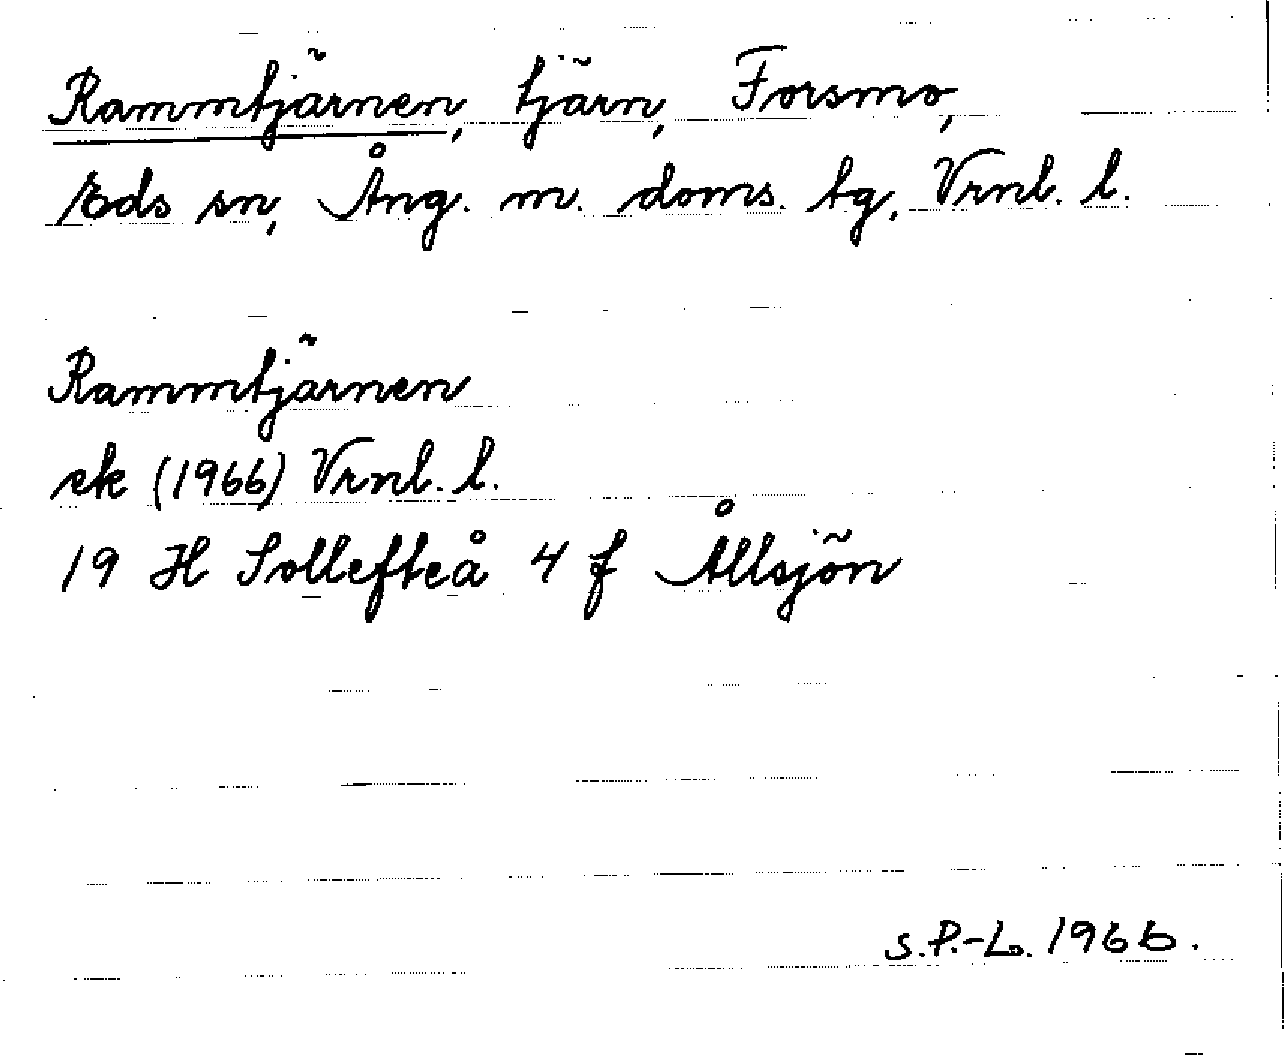 Rammtjärnen, tjärn, Forsmo,
Eds sn, Ång. m. doms. tg, Vrnl. l.
Rammtjärnen
ek (1966) Vrnl. l.
19 H Sollefteå 4 f Ållsjön
S.P.-L. 1966.